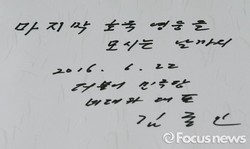 마지막 호국 영웅을
모시는 날까지
2016. 6. 22
더불어민주당
비대위 대표
김종인
Focus news